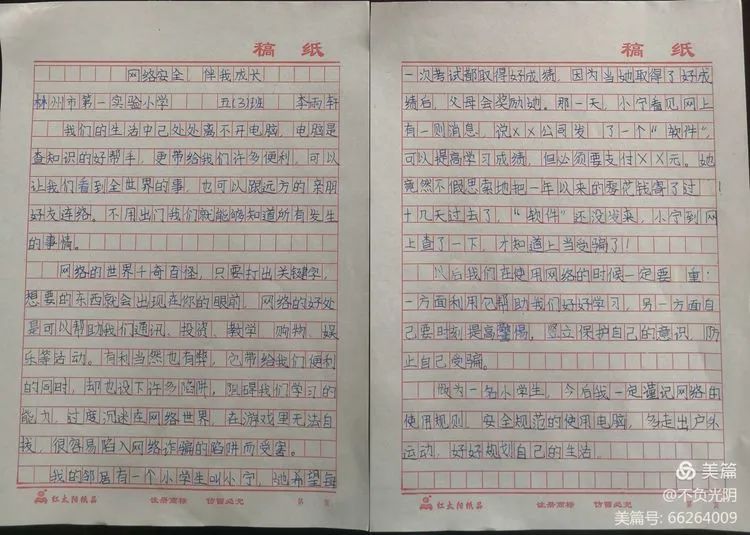 稿 纸
网络安全，伴我成长
林州市第一实验小学 五(3)班 李雨轩
我们的生活中已处处离不开电脑，电脑是
查知识的好帮手，更带给我们许多便利，可以
让我们看到全世界的事，也可以跟远方的亲朋
好友连络。不用出门我们就能够知道所有发生
的事情。
网络的世界千奇百怪，只要打出关键字，
想要的东西就会出现在你的眼前，网络的好处
是可以帮助我们通讯、投资、教学、购物、娱
乐等活动。有利当然也有弊，它带给我们便利
的同时，却也设下许多陷阱，阻碍我们学习的
能力，过度沉迷在网络世界，在游戏里无法自
拔，很容易陷入网络诈骗的陷阱而受害。
我的邻居有一个小学生叫小宁，她希望每
红太阳纸品 注册商标 仿冒必究 第 页
稿 纸
一次考试都取得好成绩，因为当她取得了好成
绩后，父母会奖励她。那一天，小宁看见网上
有一则消息，说XX公司发了一个“软件”，
可以提高学习成绩，但必须要支付XX元。她
竟然不假思索地把一年以来的零花钱寄了过！
十几天过去了，“软件”还没发来，小宁到网
上查了一下，才知道上当受骗了！
以后我们在使用网络的时候一定要 重：
一方面利用它帮助我们好好学习，另一方面自
己要时刻提高警惕，竖立保护自己的意识，防
止自己受骗。
做为一名小学生，今后我一定谨记网络的
使用规则，安全规范的使用电脑，多走出户外
运动，好好规划自己的生活。
红太阳纸品 注册商标 仿冒必究 第 页
美篇
@不负光阴
美篇号: 66264009